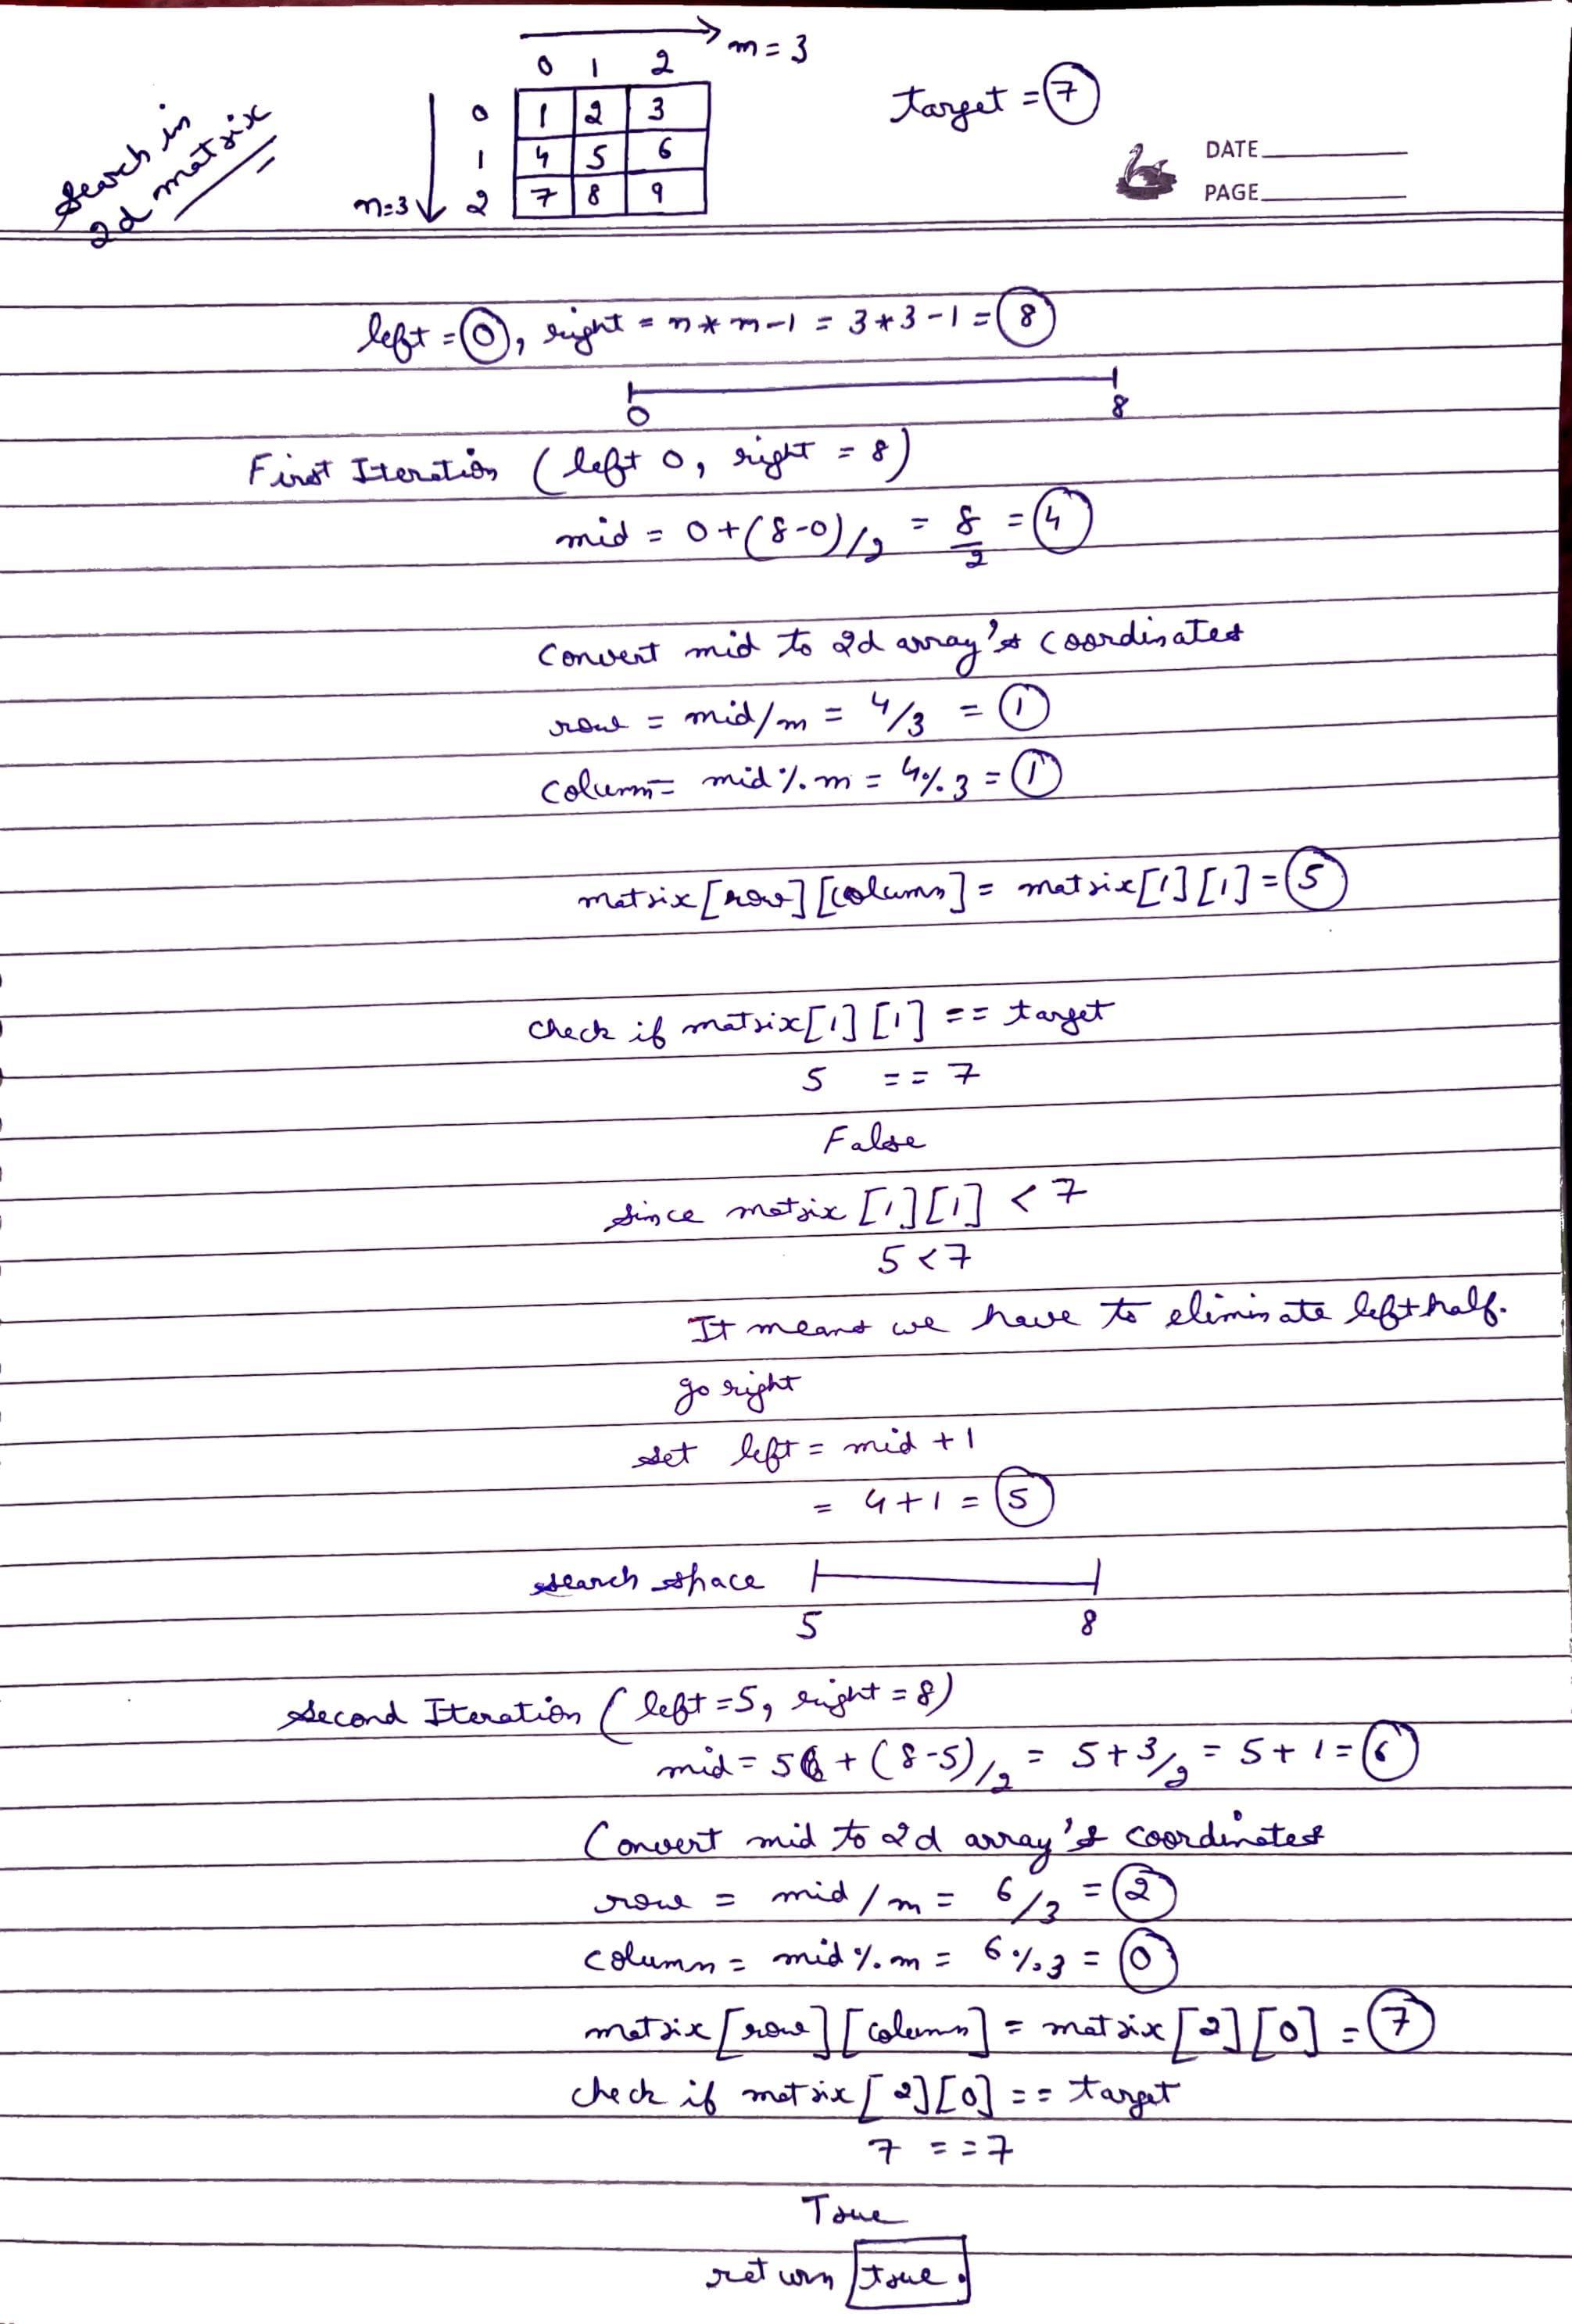 Search in
2d matrix
m = 3
0 1 2
0 1 2 3
1 4 5 6
n=3 2 7 8 9
target = 7
DATE
PAGE
left = 0, right = n * m - 1 = 3 * 3 - 1 = 8
0 8
First Iteration (left 0, right = 8)
mid = 0 + (8-0)/2 = 8/2 = 4
Convert mid to 2d array's coordinates
row = mid/m = 4/3 = 1
Column = mid % m = 4 % 3 = 1
matrix [row] [column] = matrix[1] [1] = 5
Check if matrix[1] [1] == target
5 == 7
False
Since matrix [1] [1] < 7
5 < 7
It means we have to eliminate left half.
go right
set left = mid + 1
= 4 + 1 = 5
search space
5 8
Second Iteration (left = 5, right = 8)
mid = 5 + (8-5)/2 = 5 + 3/2 = 5 + 1 = 6
Convert mid to 2d array's coordinates
row = mid / m = 6/3 = 2
column = mid % m = 6 % 3 = 0
matrix [row] [column] = matrix [2] [0] = 7
check if matrix [2] [0] == target
7 == 7
True
return true.